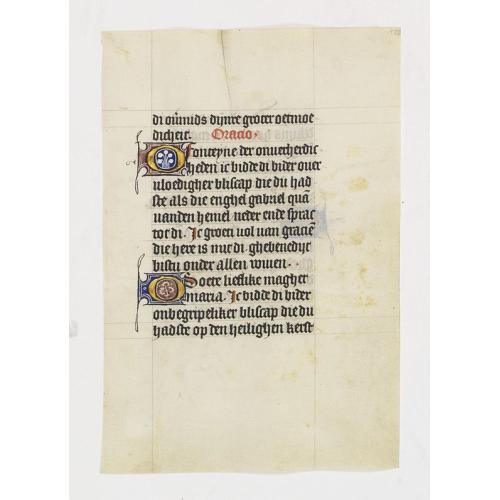 di ou̅mids dijnre groter oetmoe
dicheit. Oracio.
O fonteyne der onuerherdic
heden ic bidde di bider ouer
vloedigher bliscap die du had
ste als die enghel gabriel qua̅
vanden hemel neder ende sprac
tot di. Ic groet vol van gracie̅
die here is mit di ghebenedijt
bistu onder allen wiuen.
O soete lieflike magher
maria. Ic bidde di bider
onbegripeliker bliscap die du
hadste op den heilighen kerst